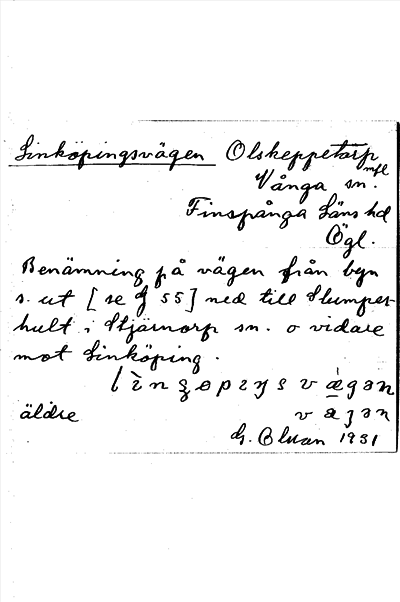 Linköpingsvägen Olskeppetorp mfl
Vånga sn.
Finspånga Läns hd
Ögl.
Benämning på vägen från byn
s. ut [se § 55] ned till Slumpes-
hult i Stjärnorp sn. o vidare
mot Linköping.
äldre
G. 1931